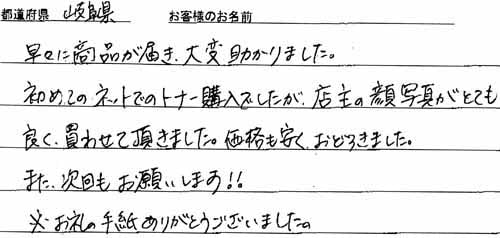 都道府県 岐阜県 お客様のお名前
早々に商品が届き、大変助かりました。
初めてのネットでのトナー購入でしたが、店主の顔写真がとても
良く、買わせて頂きました。価格も安く、おどろきました。
また、次回もお願いします!!
※お礼の手紙ありがとうございました。